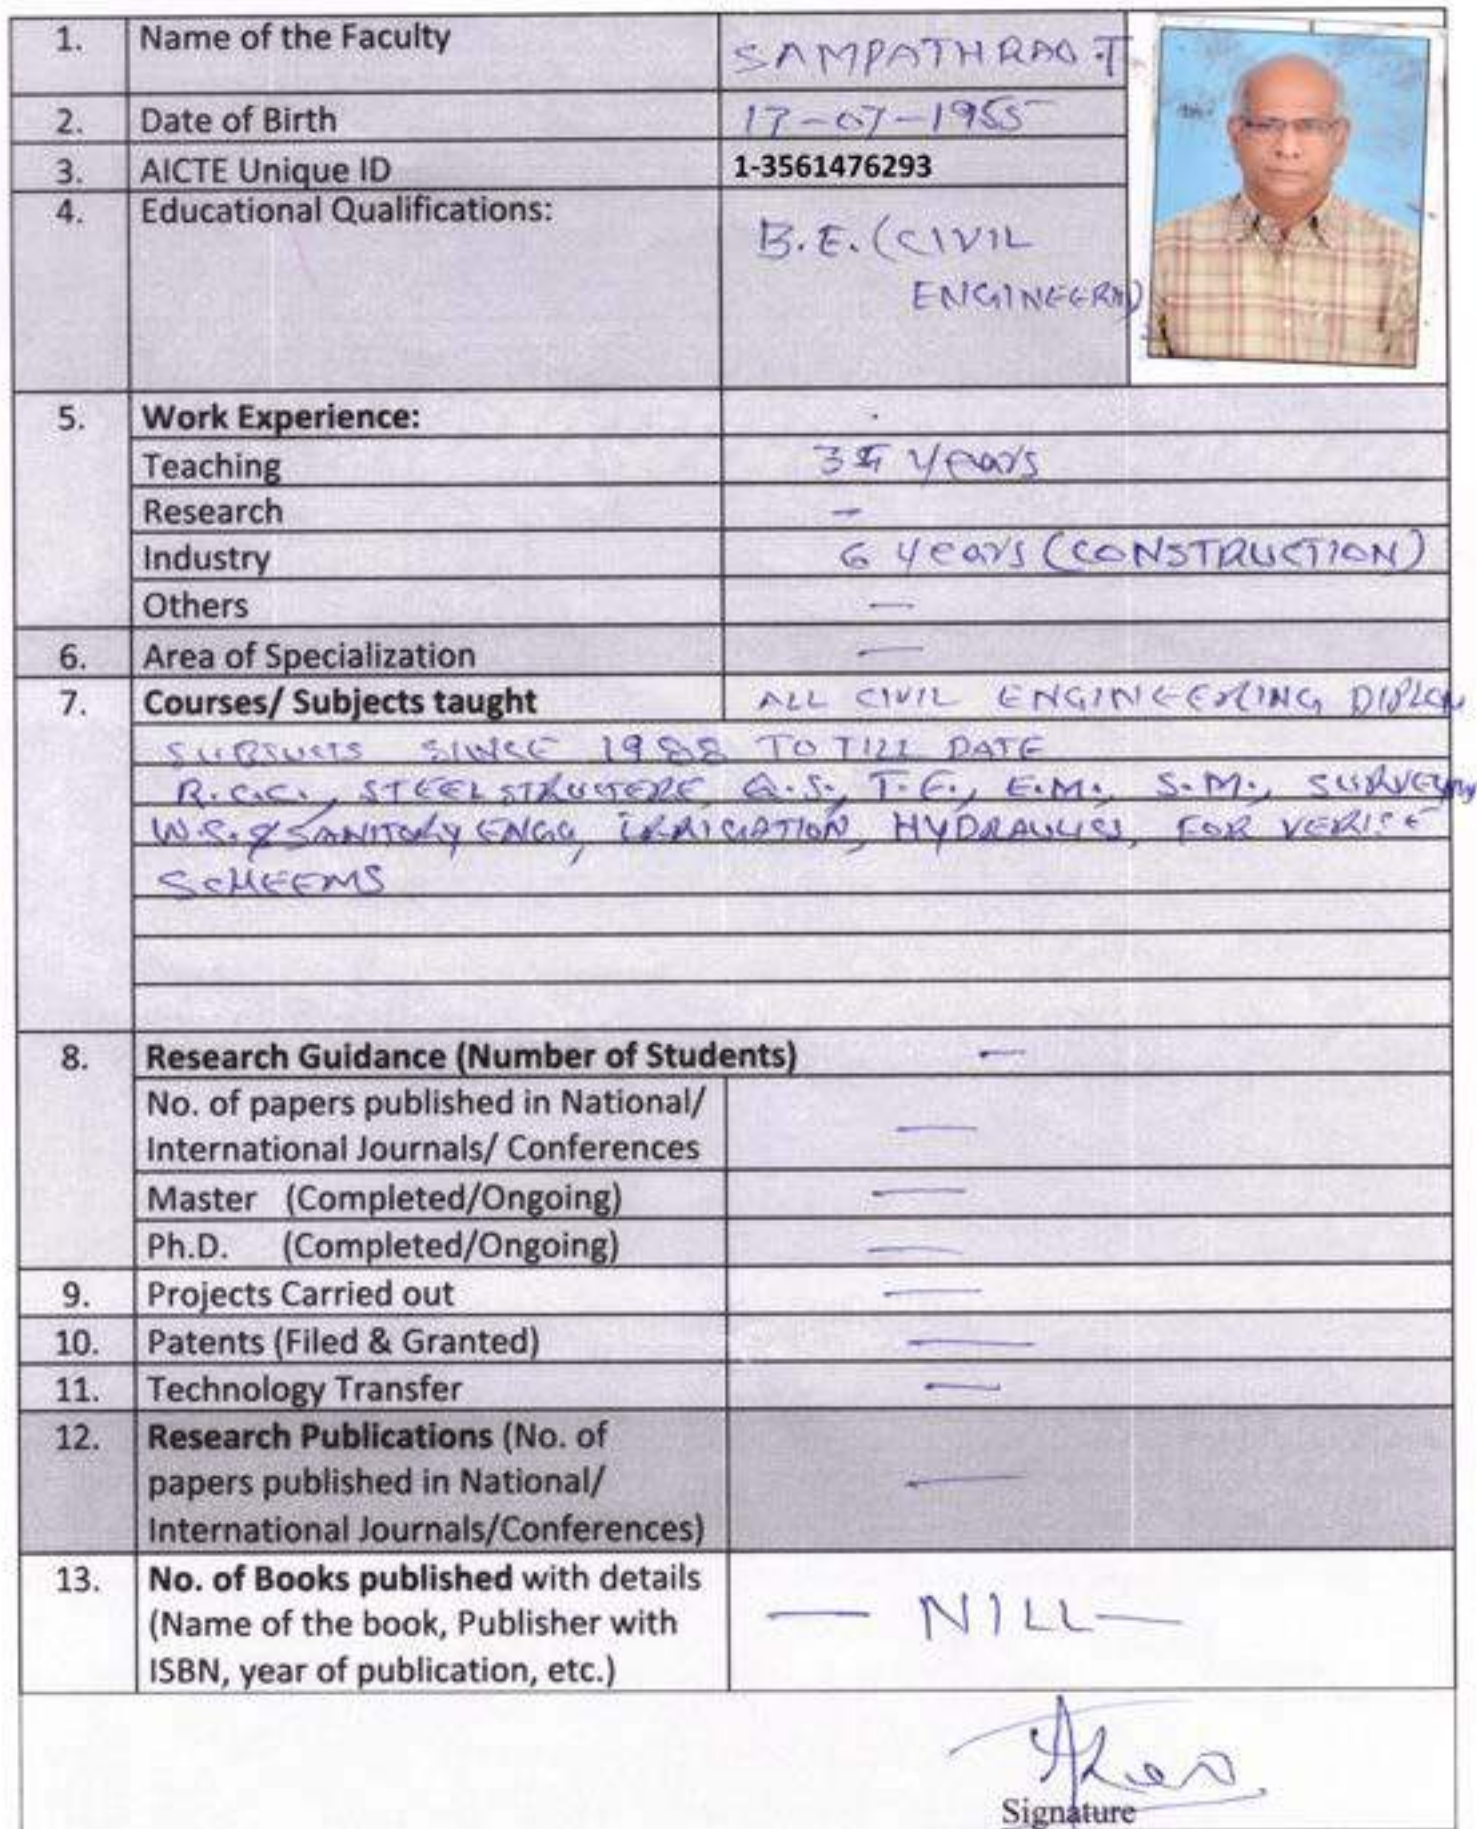 1. Name of the Faculty SAMPATHRAO.T
2. Date of Birth 17-07-1955
3. AICTE Unique ID 1-3561476293
4. Educational Qualifications: B.E. (CIVIL
ENGINEERING)
5. Work Experience:
Teaching years
Research -
Industry 6 years (CONSTRUCTION)
Others -
6. Area of Specialization -
7. Courses/ Subjects taught ALL CIVIL ENGINEERING DIPLOM
SUBJECTS SINCE 1988 TO TILL DATE
R.C.C., STEEL STRUCTERE Q.S., T.E., E.M., S.M., SURVEYING
W.S. & SANITORY ENGG, IRRIGATION, HYDRAULICS, FOR
SCHEEMS
8. Research Guidance (Number of Students) -
No. of papers published in National/
International Journals/ Conferences -
Master (Completed/Ongoing) -
Ph.D. (Completed/Ongoing) -
9. Projects Carried out -
10. Patents (Filed & Granted) -
11. Technology Transfer -
12. Research Publications (No. of
papers published in National/ -
International Journals/Conferences)
13. No. of Books published with details
(Name of the book, Publisher with — NILL —
ISBN, year of publication, etc.)
Signature